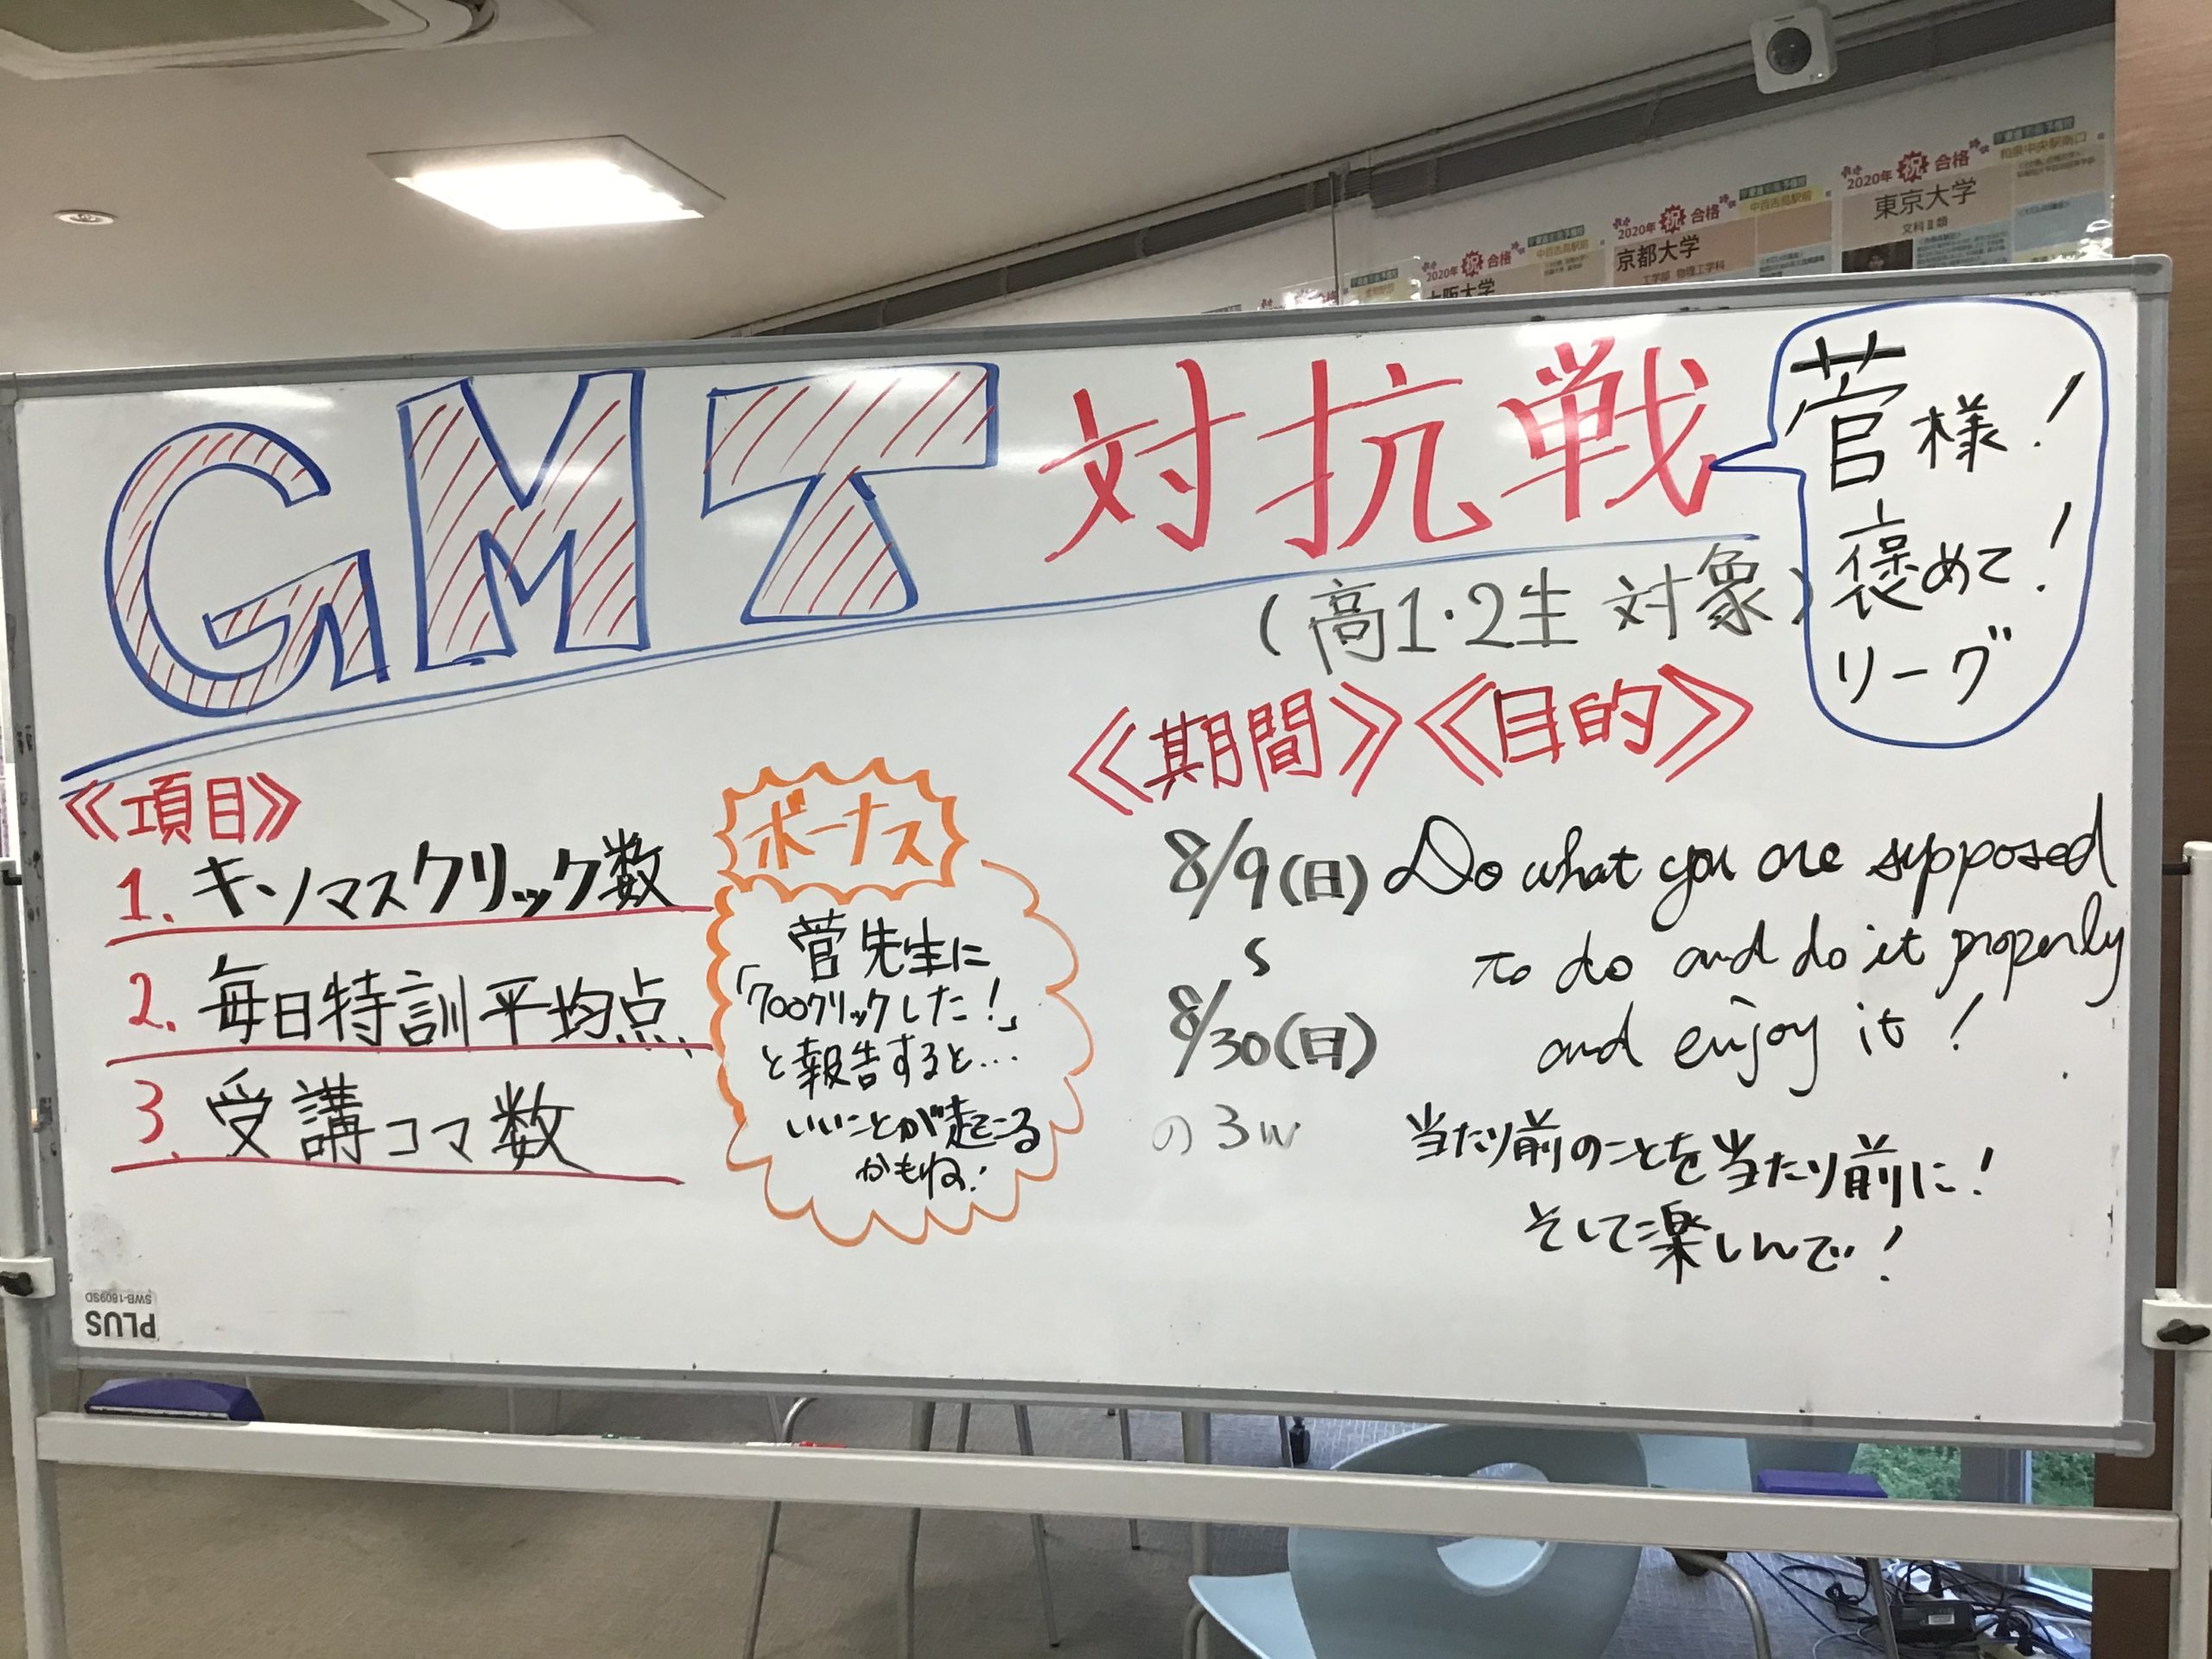 2020年 祝 合格
和泉中央駅南口
東京大学
文科Ⅱ類
2020年 祝 合格
中百舌鳥駅前
京都大学
工学部 物理工学科
2020年 祝 合格
中百舌鳥駅前
大阪大学
GMT対抗戦
菅様!
褒めて!
リーグ
(高1・2生 対象)
《項目》
1. キソマスクリック数
2. 毎日特訓平均点
3. 受講コマ数
ボーナス
菅先生に
「700クリックした!」
と報告すると…
いいことが起こる
かもね!
《期間》
8/9(日)
S
8/30(日)
の3w
《目的》
Do what you are supposed
to do and do it properly
and enjoy it!
当たり前のことを当たり前に!
そして楽しんで!
PLUS
SWB-1809SD